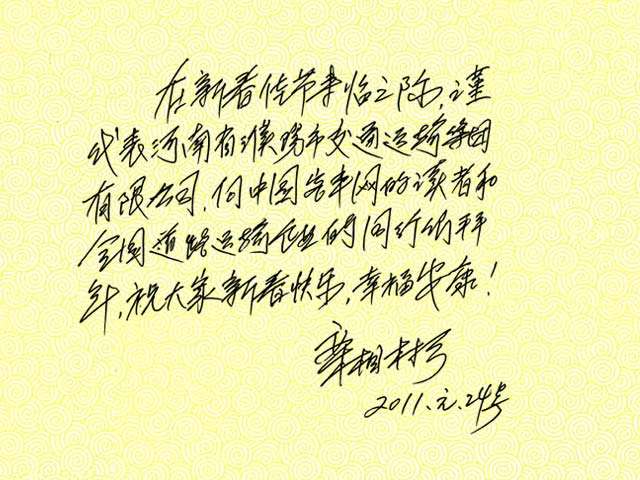 在新春佳节来临之际,谨
代表河南省濮阳市交通运输集团
有限公司,向中国客车网的读者和
全国道路运输企业的同行们拜
年,祝大家新春快乐,幸福安康!
2011.元.24号